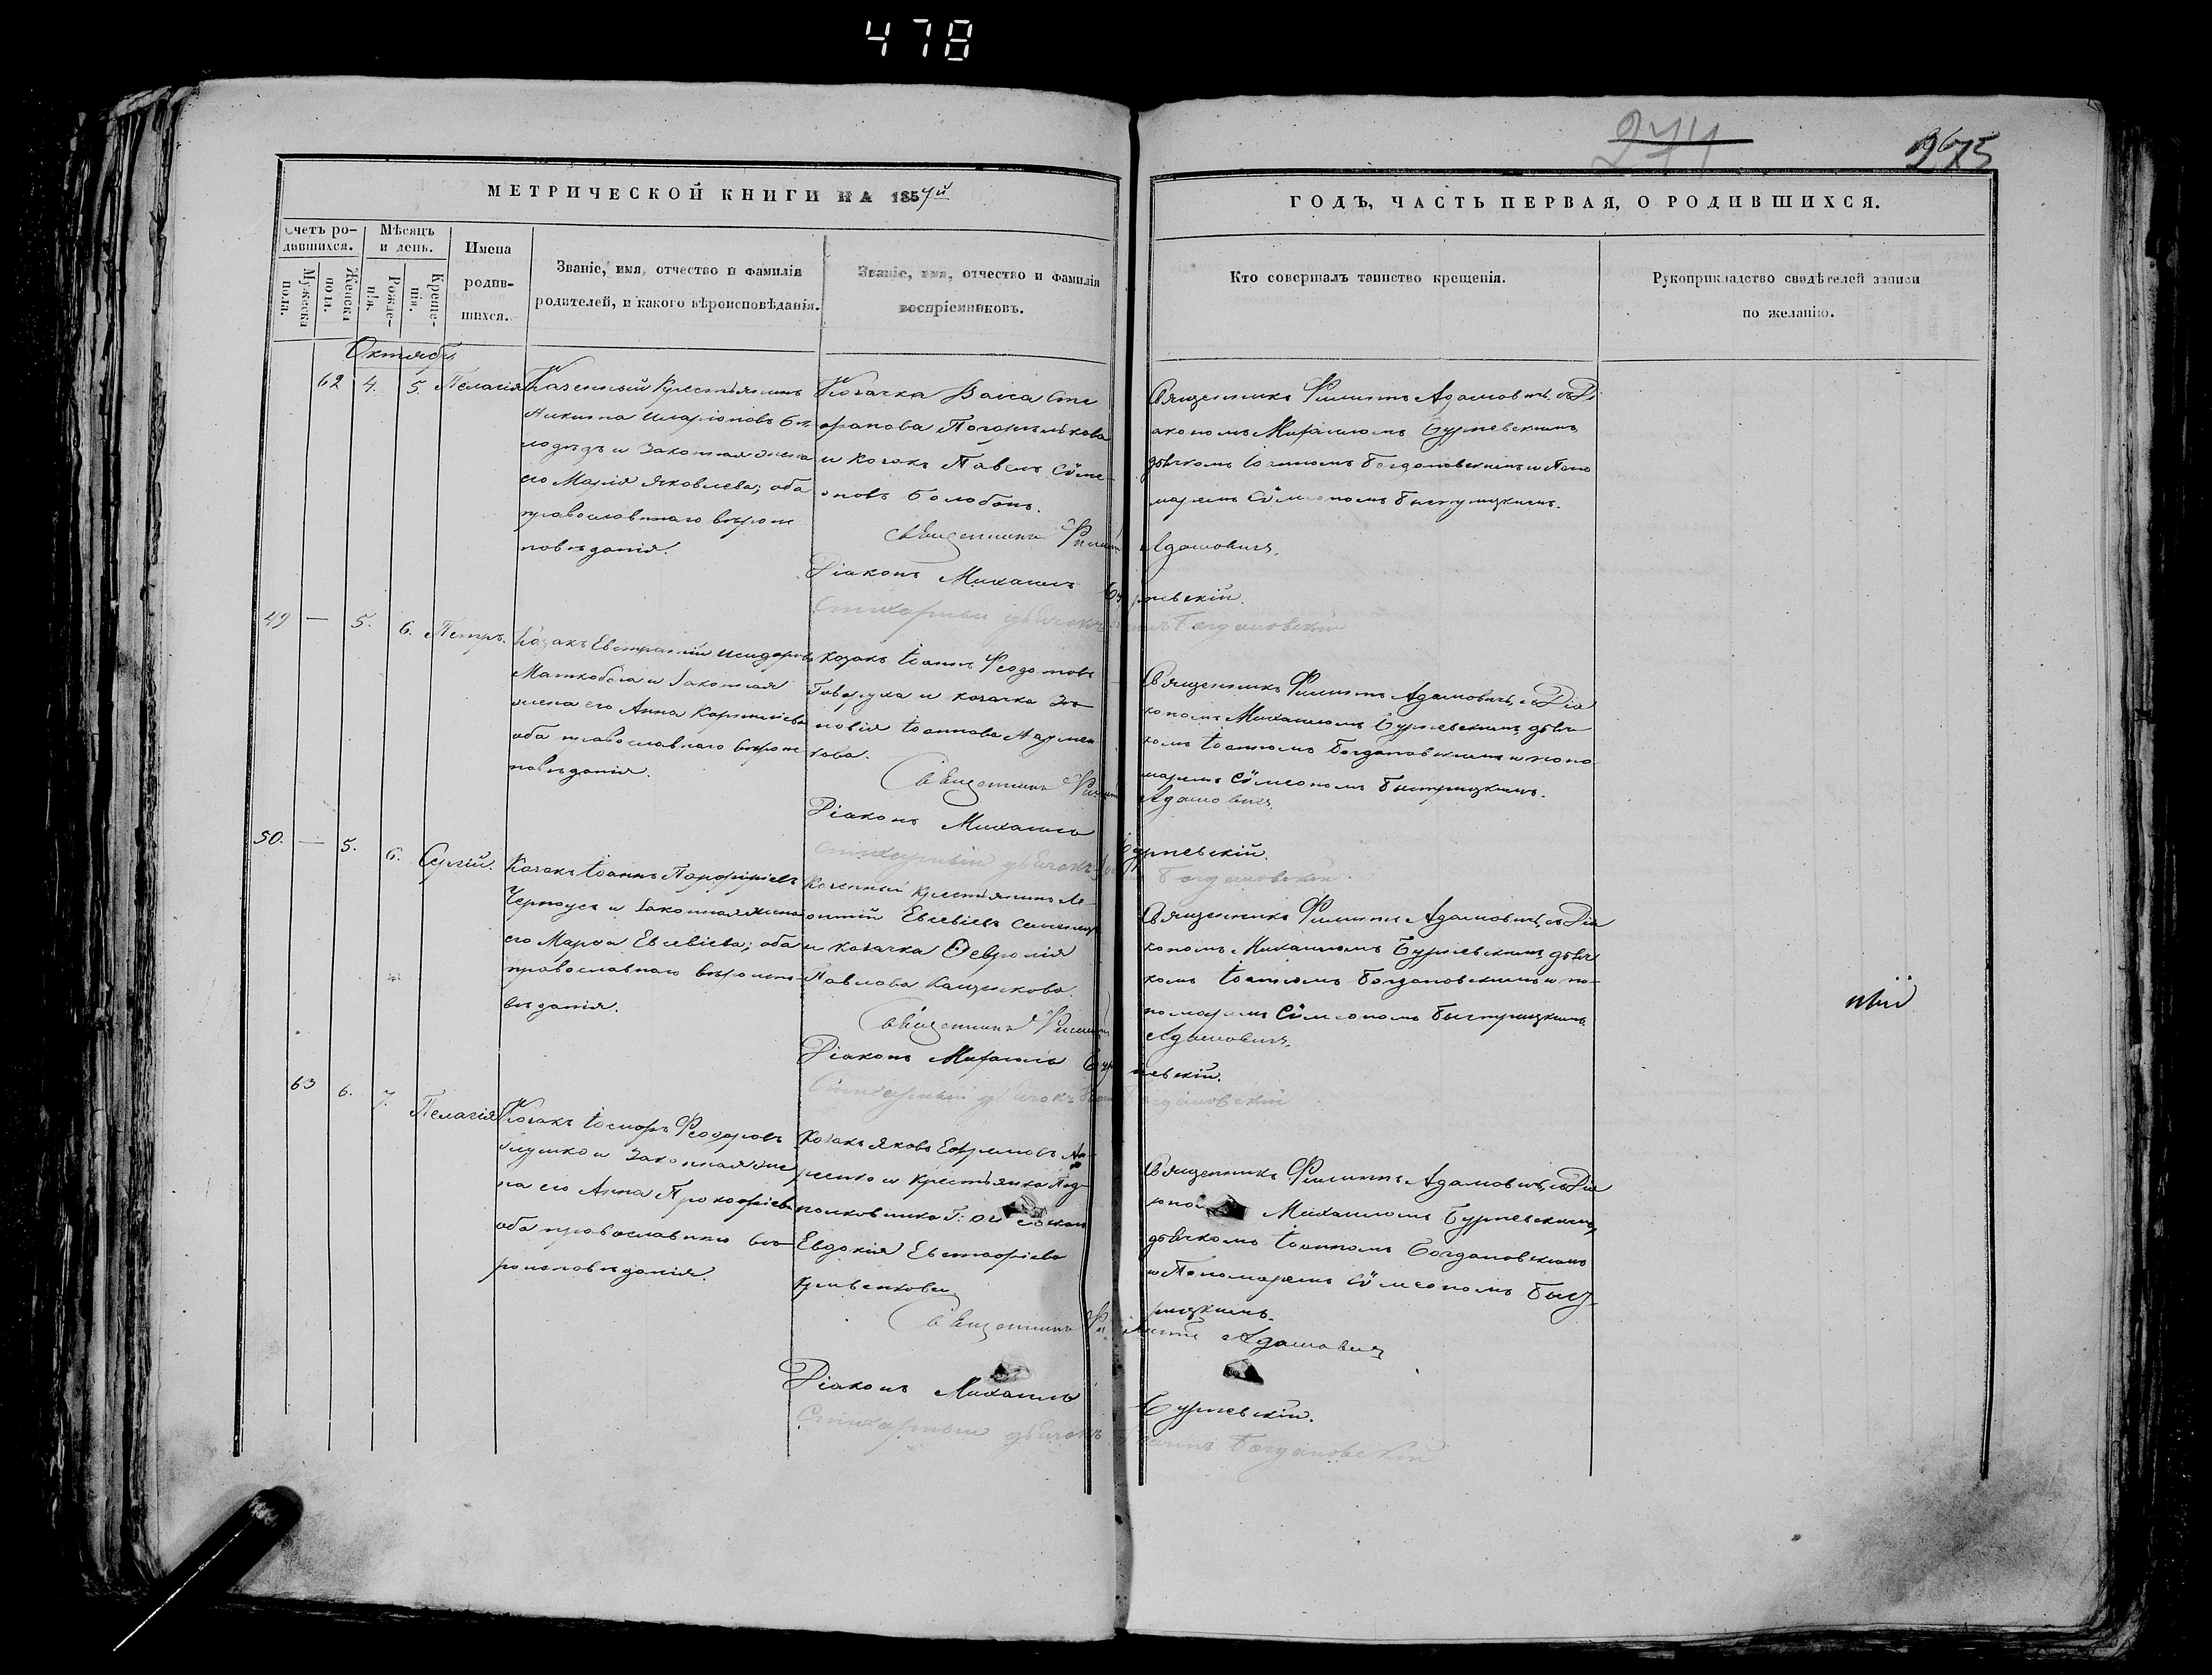 478
244
МЕТРИЧЕСКОЙ КНИГИ НА 1857й
ГОДЪ, ЧАСТЬ ПЕРВАЯ, О РОДИВШИХСЯ.
Счетъ ро-
дившихся.
Мужеска
пола.
Женска
пола.
Мѣсяцъ
и день.
Рожде-
нія.
Креще-
нія.
Имена
родив-
шихся.
Званіе, имя, отчество и фамилія
родителей, и какого вѣроисповѣданія.
Званіе, имя, отчество и фамилія
воспріемниковъ.
Кто совершалъ таинство крещенія.
Рукоприкладство свидѣтелей записи
по желанію.
Октябрь
62 4. 5. Пелагія
Казенный Крестьянинъ
Никита Иларіоновъ
и Законная жена
его Марія Яковлева; оба
православнаго вѣроис
повѣданія.
Козачка Васса Сте
фанова
и Козакъ Павелъ Сѵме
оновъ Болобанъ.
Священникъ Филиппъ Адамовичъ, съ Ді
акономъ Михаиломъ Бурневскимъ,
дьячкомъ Іоанномъ Богдановскимъ и Поно
маремъ Сѵмеономъ Быстрицкимъ.
Священникъ Филиппъ Адамовичъ.
Діаконъ Михаилъ Бурневскій.
Стихарный дьячокъ Іоаннъ Богдановскій
49 — 5. 6. Петръ.
Козакъ Евстратій Исидоровъ
и Законная
жена его Анна Корниліева
оба православнаго вѣроис
повѣданія.
Козакъ Іоаннъ Феодотовъ
Говоруха и козачка Зи-
новія Іоаннова
кова.
Священникъ Филиппъ Адамовичъ, съ Діа
кономъ Михаиломъ Бурневскимъ, дьяч
комъ Іоанномъ Богдановскимъ и поно
маремъ Сѵмеономъ Быстрицкимъ.
Священникъ Филиппъ Адамовичъ.
Діаконъ Михаилъ Бурневскій.
Стихарный дьячокъ Іоаннъ Богдановскій.
50. — 5. 6. Сергій.
Козакъ Іоаннъ Порфиріевъ
Черноусъ и Законная жена
его Марѳа Евсевіева; оба
православнаго вѣроиспо-
вѣданія.
Казенный Крестьянинъ Ле-
онтій Евсевіевъ
и козачка Ѳевронія
Павлова
Священникъ Филиппъ Адамовичъ, съ Діа
кономъ Михаиломъ Бурневскимъ, дьяч
комъ Іоанномъ Богдановскимъ и по-
номаремъ Сѵмеономъ Быстрицкимъ.
Священникъ Филиппъ Адамовичъ.
Діаконъ Михаилъ Бурневскій.
Стихарный дьячокъ Іоаннъ Богдановскій
63 6. 7. Пелагія
Козакъ Іосифъ Феодоровъ
и Законная же
на его Анна Прокофіева
оба православнаго вѣ-
роисповѣданія.
Козакъ Яковъ Ефремовъ
и Крестьянка Под-
полковника
Евдокія Евстафіева
Кривенкова.
Священникъ Филиппъ Адамовичъ, съ Діа
Михаиломъ Бурневскимъ,
дьячкомъ Іоанномъ Богдановскимъ
и Пономаремъ Сѵмеономъ Быст-
рицкимъ.
Священникъ Филиппъ Адамовичъ
Діаконъ Михаилъ Бурневскій.
Стихарный дьячокъ Іоаннъ Богдановскій